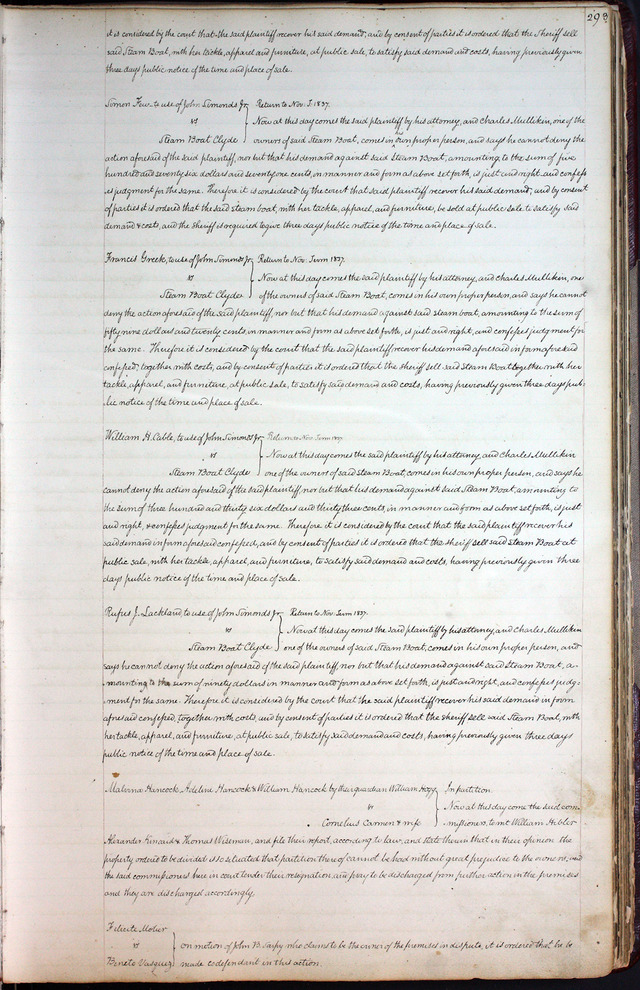 293
it is considered by the court that the said plaintiff recover his said demand, and by consent of parties it is ordered that the Sheriff sell
said Steam Boat, with her tackle, apparel and furniture, at public sale, to satisfy said demand and costs, having previously given
three days public notice of the time and place of sale.
Simon Few, to use of John Simonds Jr. Return to Nov. T. 1837.
vs Now at this day comes the said plaintiff by his attorney, and Charles Mulliken, one of the
Steam Boat Clyde owners of said Steam Boat, comes in his own proper person, and says he cannot deny the
action aforesaid of the said plaintiff, nor but that his demand against said Steam Boat, amounting to the sum of five
hundred and seventy six dollars and seventy one cents, in manner and form as above set forth, is just and right and confess
es judgment for the same. Therefore it is considered by the court that said plaintiff recover his said demand, and by consent
of parties it is ordered that the said steam boat, with her tackle, apparel, and furniture, be sold at public sale to satisfy said
demand & costs, and the sheriff is required to give three days public notice of the time and place of sale.
Francis Greek, to use of John Simonds Jr. Return to Nov. Term 1837.
vs Now at this day comes the said plaintiff by his attorney, and Charles Mulliken, one
Steam Boat Clyde of the owners of said Steam Boat, comes in his own proper person, and says he cannot
deny the action aforesaid of the said plaintiff, nor but that his demand against said steam boat, amounting to the sum of
fifty nine dollars and twenty cents, in manner and form as above set forth, is just and right, and confesses judgment for
the same. Therefore it is considered by the court that the said plaintiff recover his demand aforesaid in form aforesaid
confessed, together with costs, and by consent of parties it is ordered that the sheriff sell said Steam Boat together with her
tackle, apparel, and furniture, at public sale, to satisfy said demand and costs, having previously given three days pub-
lic notice of the time and place of sale.
William H. Cable, to use of John Simonds Jr. Return to Nov. Term 1837.
vs Now at this day comes the said plaintiff by his attorney, and Charles Mulliken
Steam Boat Clyde one of the owners of said Steam Boat, comes in his own proper person, and says he
cannot deny the action aforesaid of the said plaintiff, nor but that his demand against said Steam Boat, amounting to
the sum of three hundred and thirty six dollars and thirty three cents, in manner and form as above set forth, is just
and right, & confesses judgment for the same. Therefore it is considered by the court that the said plaintiff recover his
said demand in form aforesaid confessed, and by consent of parties it is ordered that the sheriff sell said Steam Boat at
public sale, with her tackle, apparel, and furniture, to satisfy said demand and costs, having previously given three
days public notice of the time and place of sale.
Rufus J. Lackland, to use of John Simonds Jr. Return to Nov. Term 1837.
vs Now at this day comes the said plaintiff by his attorney, and Charles Mulliken
Steam Boat Clyde one of the owners of said Steam Boat, comes in his own proper person, and
says he cannot deny the action aforesaid of the said plaintiff, nor but that his demand against said Steam Boat, a-
mounting to the sum of ninety dollars in manner and form as above set forth, is just and right, and confesses judg-
ment for the same. Therefore it is considered by the court that the said plaintiff recover his said demand in form
aforesaid confessed, together with costs, and by consent of parties it is ordered that the sheriff sell said Steam Boat, with
her tackle, apparel, and furniture, at public sale, to satisfy said demand and costs, having previously given three days
public notice of the time and place of sale.
Malvina Hancock, Adeline Hancock & William Hancock by their guardian William Hopp In partition.
vs Now at this day come the said com-
Cornelius Carmen & wife missioners, to wit William Hibler
Alexander Kincaid & Thomas Wiseman, and file their report, according to law, and state therein that in their opinion the
property ordered to be divided is so situated that partition thereof cannot be had without great prejudice to the owners, and
the said commissioners here in court tender their resignation and pray to be discharged from further action in the premises
and they are discharged accordingly.
Felicite Motier
vs on motion of John B. Sarpy who claims to be the owner of the premises in dispute, it is ordered that he be
Benito Vasquez made codefendant in this action.